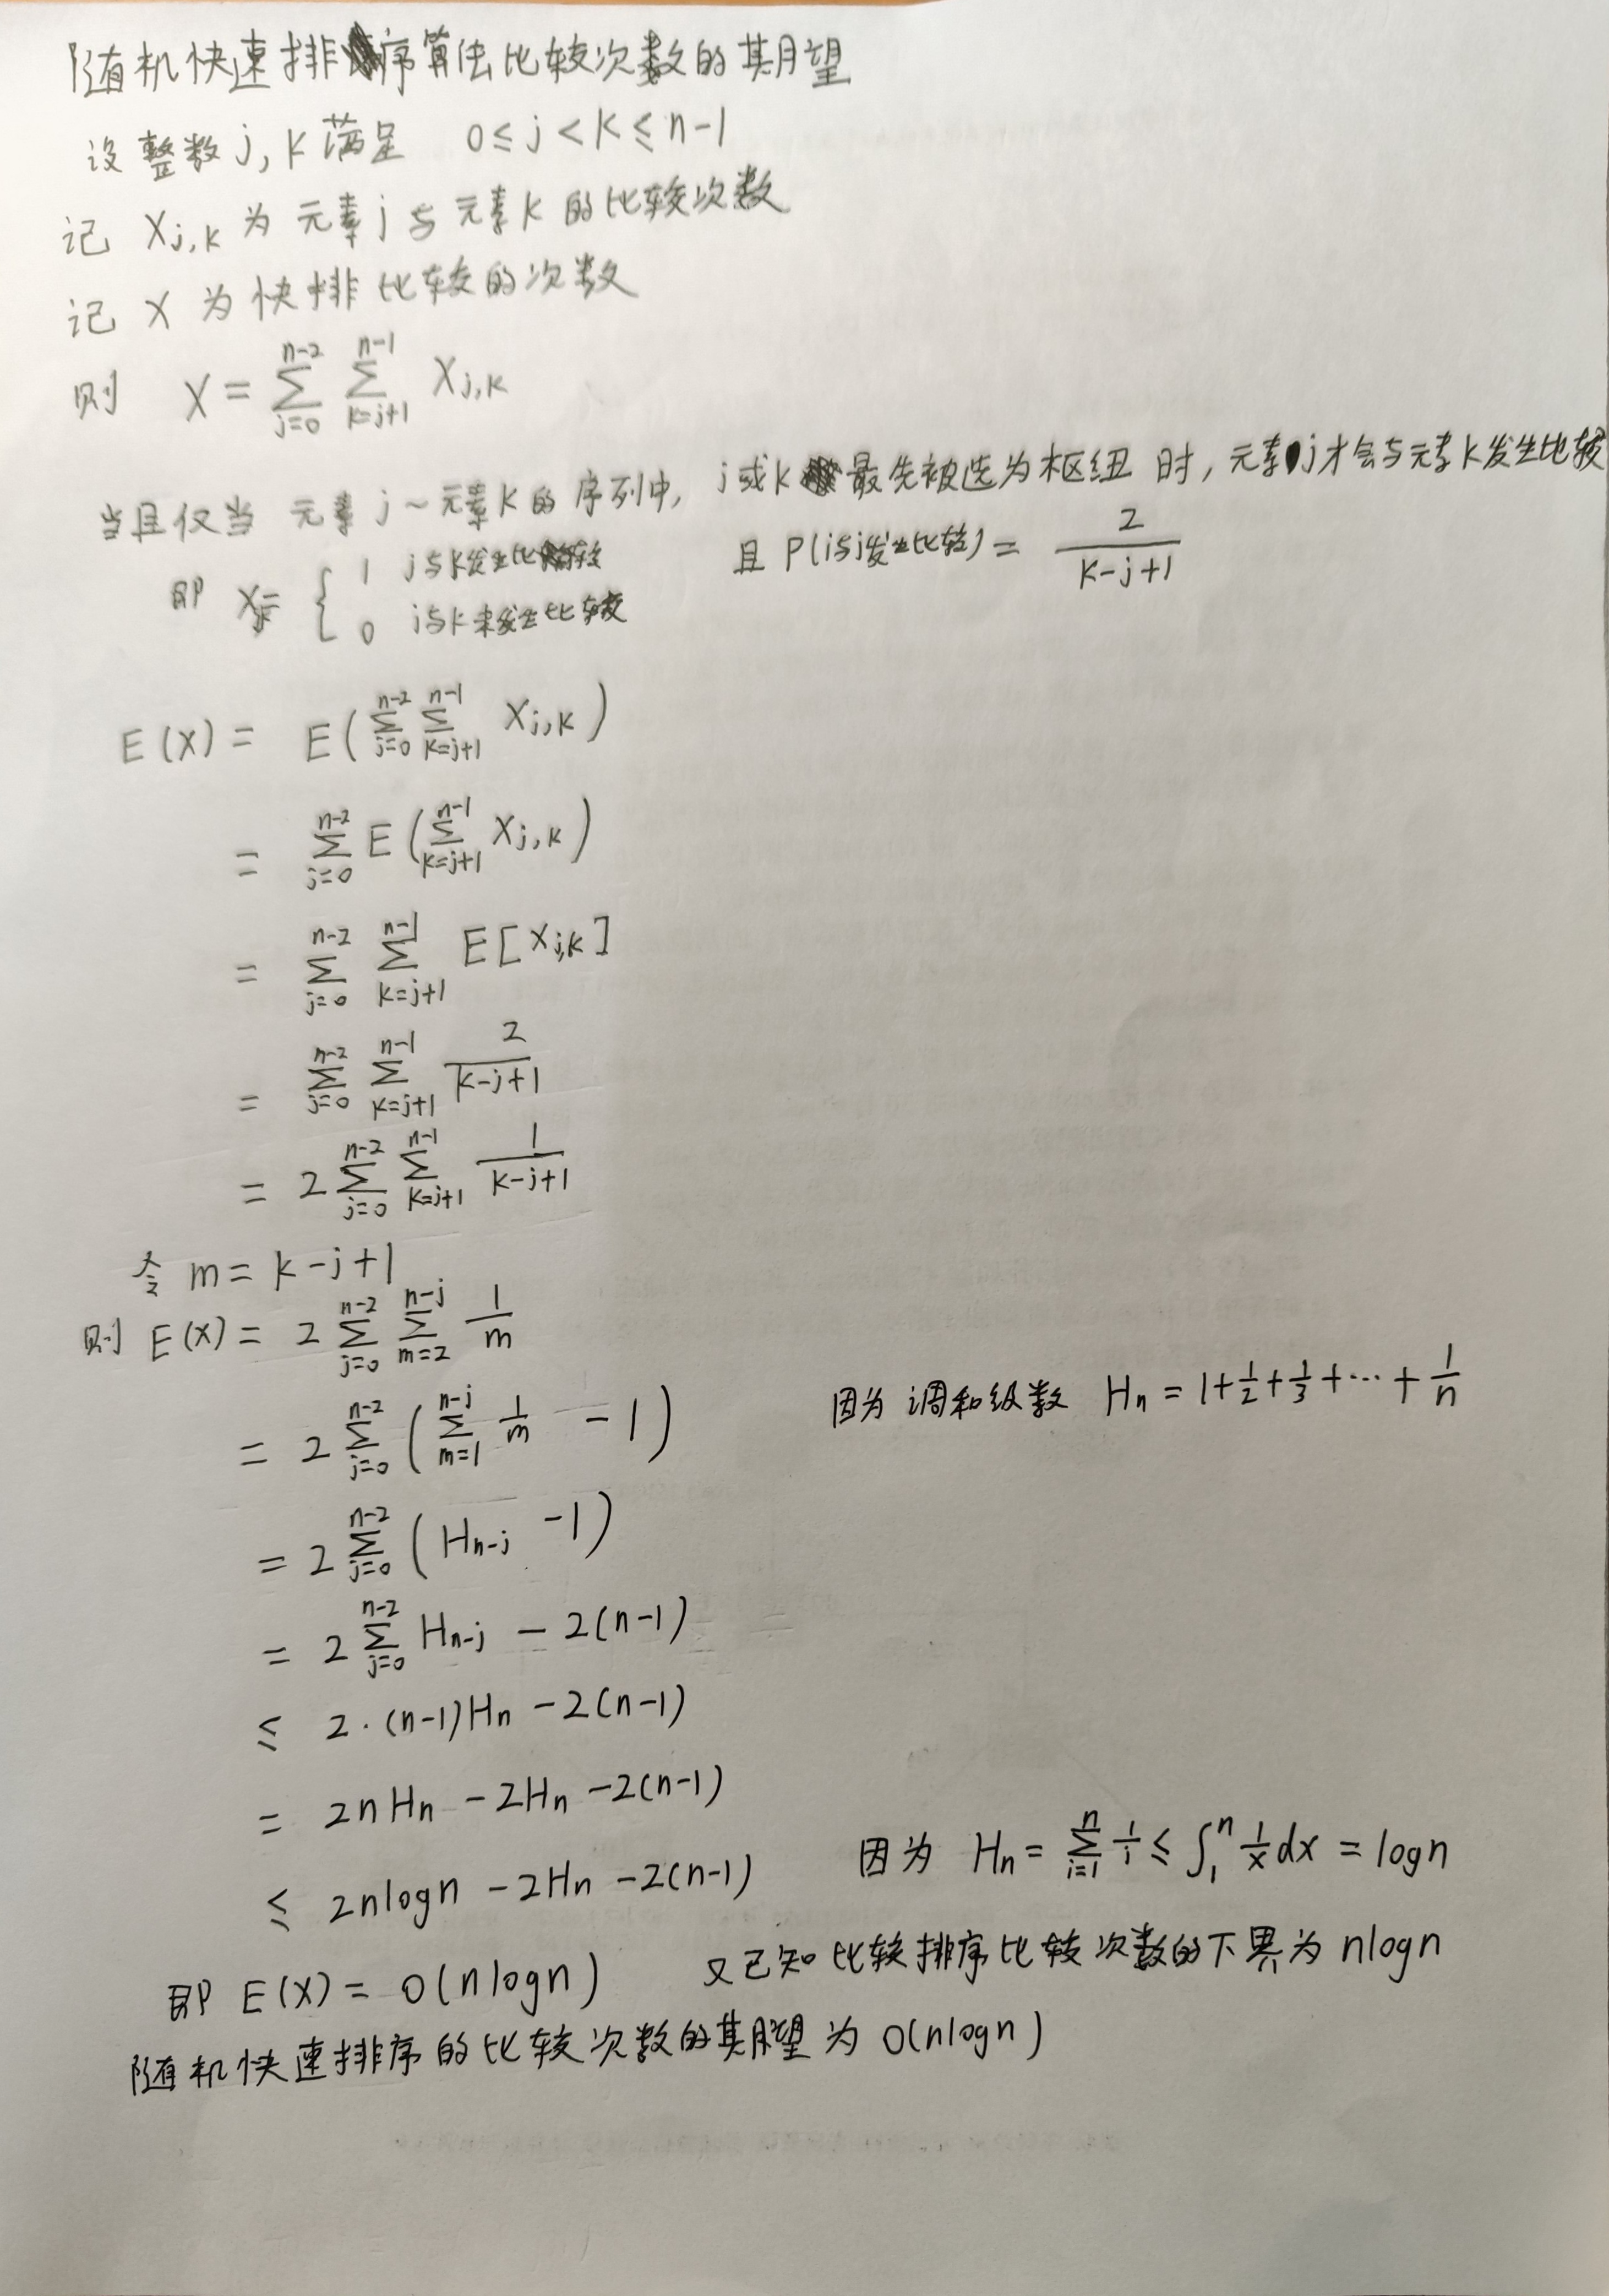 随机快速排序算法比较次数的期望
设整数j,k满足 0≤j<k≤n-1
记 Xj,k 为 元素j与元素k的比较次数
记 X 为快排比较的次数
则 X = ∑_{j=0}^{n-2} ∑_{k=j+1}^{n-1} Xj,k
当且仅当 元素j~元素k的序列中, j或k最先被选为枢纽时, 元素j才会与元素k发生比较
即 Xjk = { 1 j与k发生比较 且 P(i与j发生比较) = 2/(k-j+1)
0 j与k未发生比较
E(X) = E(∑_{j=0}^{n-2} ∑_{k=j+1}^{n-1} Xj,k)
= ∑_{j=0}^{n-2} E(∑_{k=j+1}^{n-1} Xj,k)
= ∑_{j=0}^{n-2} ∑_{k=j+1}^{n-1} E[Xj,k]
= ∑_{j=0}^{n-2} ∑_{k=j+1}^{n-1} 2/(k-j+1)
= 2 ∑_{j=0}^{n-2} ∑_{k=j+1}^{n-1} 1/(k-j+1)
令 m = k-j+1
则 E(X) = 2 ∑_{j=0}^{n-2} ∑_{m=2}^{n-j} 1/m
= 2 ∑_{j=0}^{n-2} (∑_{m=1}^{n-j} 1/m - 1) 因为 调和级数 Hn = 1+1/2+1/3+⋯+1/n
= 2 ∑_{j=0}^{n-2} (Hn-j -1)
= 2 ∑_{j=0}^{n-2} Hn-j - 2(n-1)
≤ 2·(n-1)Hn - 2(n-1)
= 2nHn - 2Hn - 2(n-1)
≤ 2nlogn - 2Hn - 2(n-1) 因为 Hn = ∑_{i=1}^{n} 1/i ≤ ∫_1^n 1/x dx = logn
即 E(X) = O(nlogn) 又已知 比较排序比较次数的下界为 nlogn
随机快速排序的比较次数的期望为 O(nlogn)